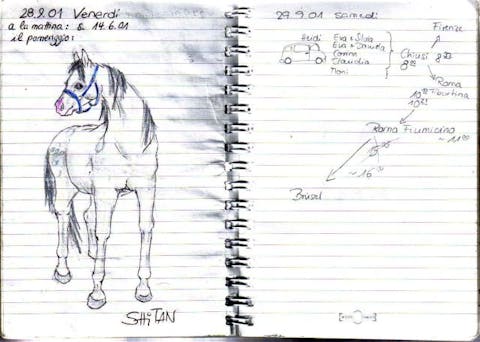 28.9.01 Venerdi
a la mattina: & 14.6.01
il pomeriggio:
SHiTAN
29.9.01 Samedi
Heidi
Eva & Silvia
Eva & Daniela
Corina
Claudia
Moni
Firenze
Chiusi
Roma
Tiburtina
Roma Fiumicino
~ 11
~ 16
Brüssel